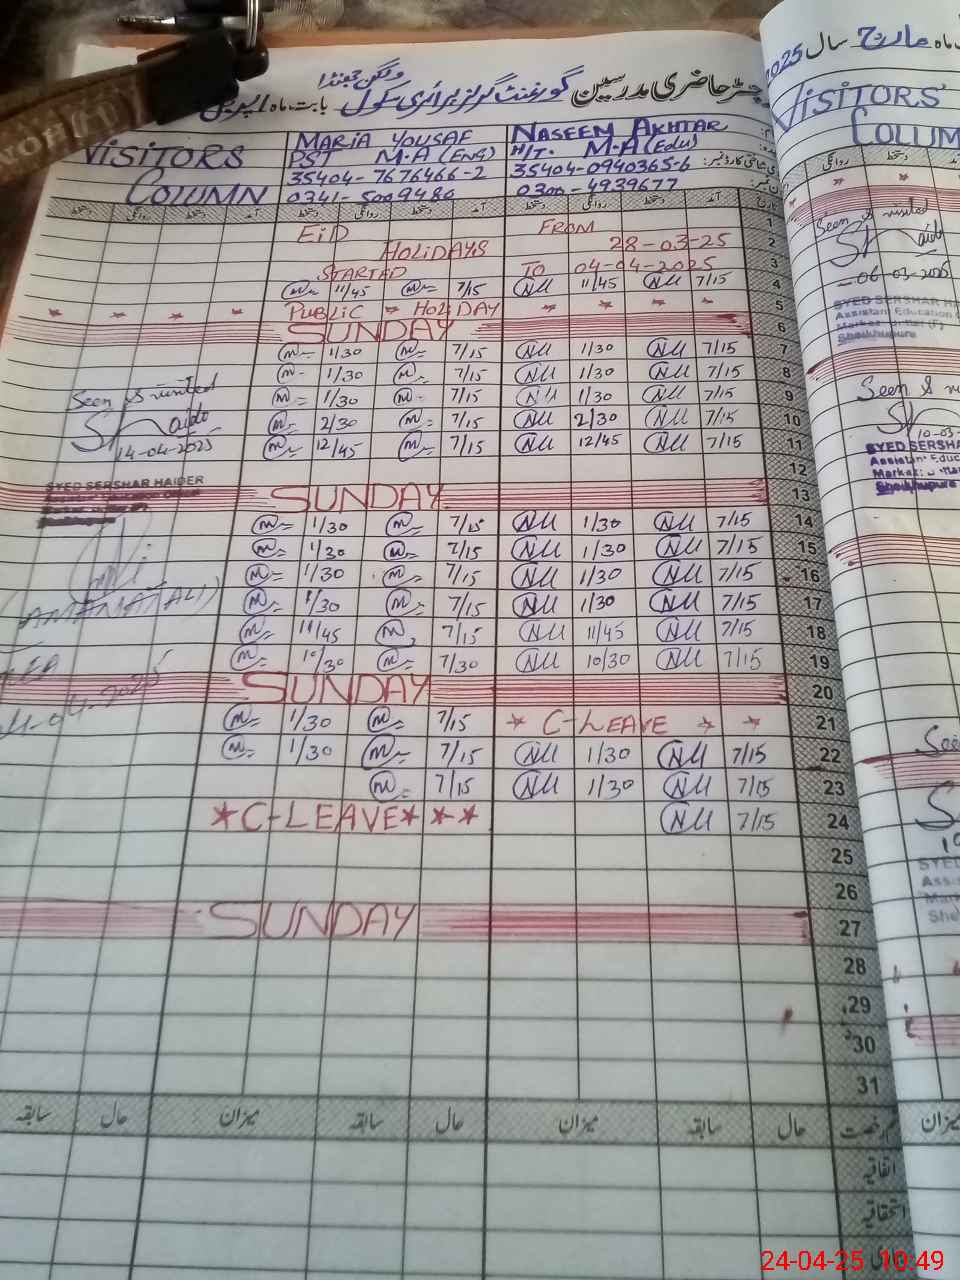 رجسٹر حاضری مدرسین گورنمنٹ گرلز پرائمری سکول بابت ماہ اپریل
VISITORS COLUMN
MARIA YOUSAF
PST M-A (ENG)
35404-7676466-2
0341-5009480
NASEEM AKHTAR
H/T. M-A (Edu)
35404-0940365-6
0300-4939677
آمد دستخط روانگی دستخط آمد دستخط روانگی دستخط آمد
1 EID FROM
2 HOLIDAYS 28-03-25
3 STARTED TO 04-04-2025
4 7/15 NU 11/45 NU 7/15 m 11/45 m
5 PUBLIC HOLIDAY
6 SUNDAY
7 7/15 NU 1/30 NU 7/15 m 1/30 m
8 7/15 NU 1/30 NU 7/15 m 1/30 m
9 7/15 NU 1/30 NU 7/15 m 1/30 m
10 7/15 NU 2/30 NU 7/15 m 2/30 m
11 7/15 NU 12/45 NU 7/15 m 12/45 m
12
13 SUNDAY
14 7/15 NU 1/30 NU 7/15 m 1/30 m
15 7/15 NU 1/30 NU 7/15 m 1/30 m
16 7/15 NU 1/30 NU 7/15 m 1/30 m
17 7/15 NU 1/30 NU 7/15 m 1/30 m
18 7/15 NU 11/45 NU 7/15 m 11/45 m
19 7/15 NU 10/30 NU 7/30 m 10/30 m
20 SUNDAY
21 C-LEAVE 7/15 m 1/30 m
22 7/15 NU 1/30 NU 7/15 m 1/30 m
23 7/15 NU 1/30 NU 7/15 m
24 7/15 NU C-LEAVE
25
26
27 SUNDAY
28
29
30
31
حال سابقہ میزان حال سابقہ میزان حال سابقہ
اتفاقیہ
استحقاقیہ
Seen & visited
14-04-2025
SYED SERSHAR HAIDER
Assistant Education Officer
Sheikhupura
(AMANAT ALI)
2025 سال مارچ ماہ
VISITORS'
COLUM
Seen & visited
06-03-2025
SYED SERSHAR HA
Assistant Education
Sheikhupura
Seen & visited
10-03-
SYED SERSHA
Assistant Educ
Sheikhupura
See
SYED
Assis
Mark
She
میزان
24-04-25 10:49